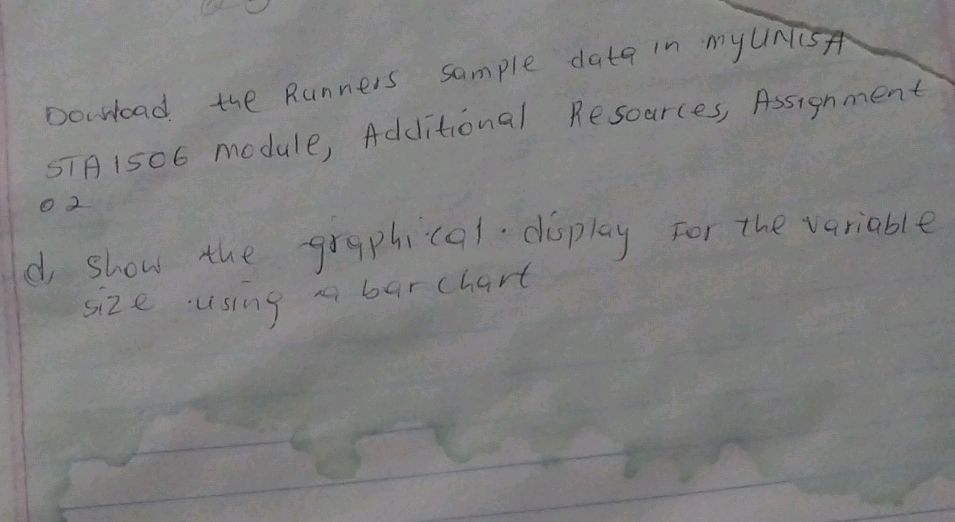 Download. the Runners sample data in myUNISA
STA1506 module, Additional Resources, Assignment
02
d, Show the graphical display For the variable
size using a bar chart